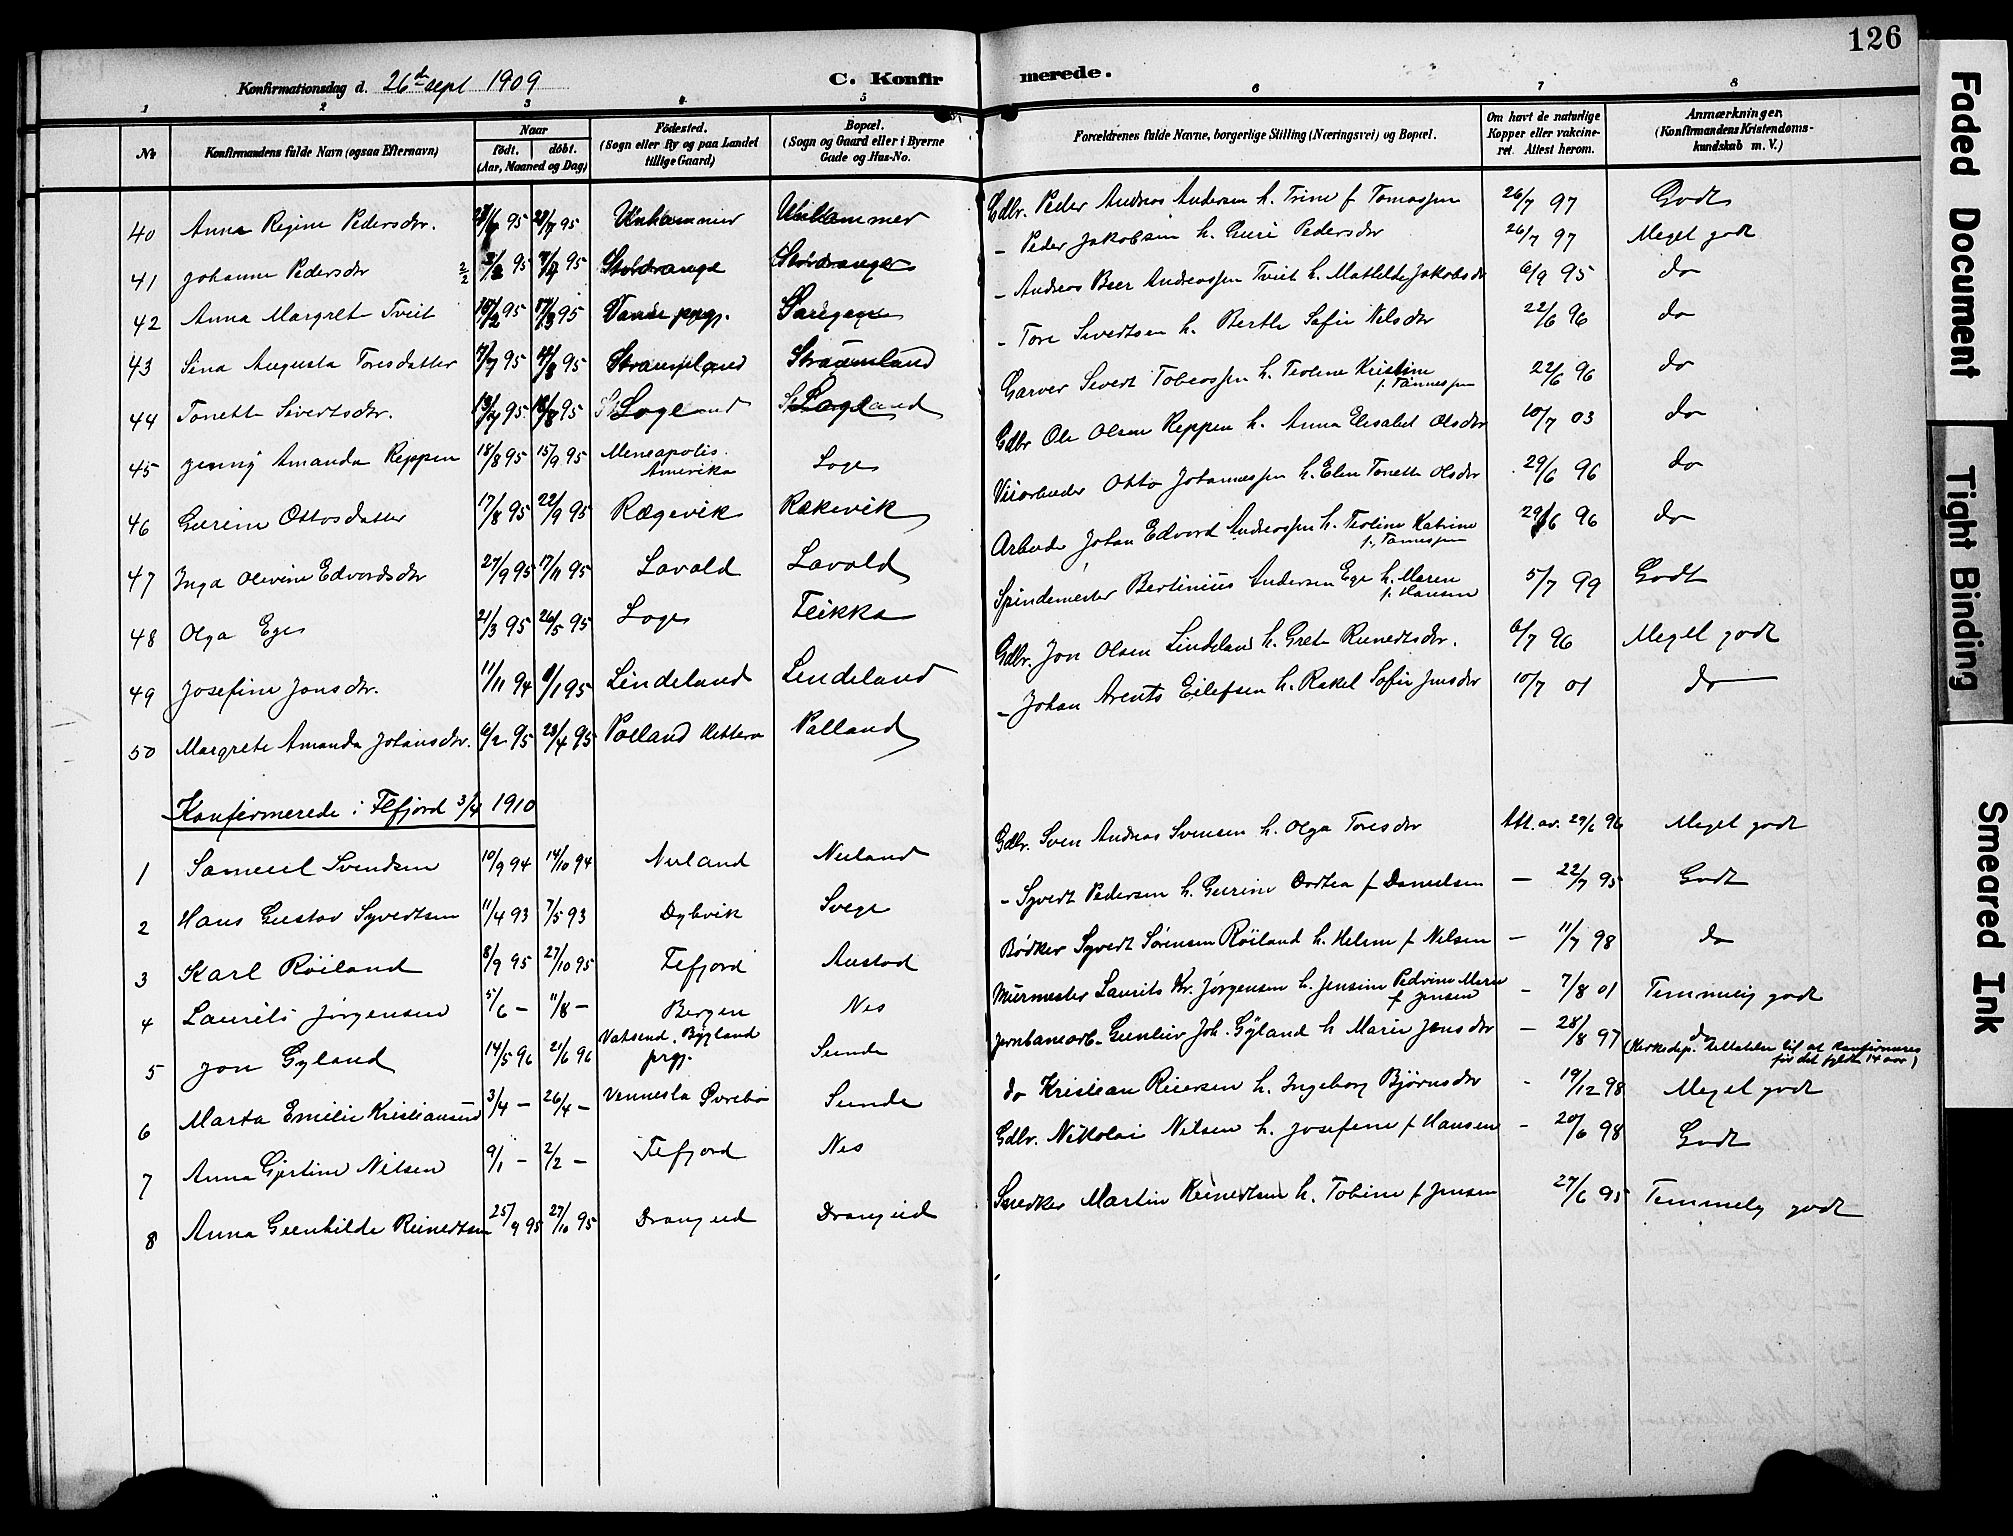 126
Konfirmationsdag d. 26de sept 1909
C. Konfirmerede.
1 2 3 4 5 6 7 8
№
Konfirmandens fulde Navn (ogsaa Efternavn)
Naar
født. døbt.
(Aar, Maaned og Dag)
Fødested.
(Sogn eller By og paa Landet
tillige Gaard)
Bopæl.
(Sogn og Gaard eller i Byerne
Gade og Hus-No.
Forældrenes fulde Navne, borgerlige Stilling (Næringsvei) og Bopæl.
Om havt de naturlige
Kopper eller vakcine-
ret. Attest herom.
Anmærkninger.
(Konfirmandens Kristendoms-
kundskab m. V.)
40 Anna Regine Pedersdtr. 95 28/7 95 Urhammer Gdbr. Peder Andreas Andersen h. Trine f Tomassen 26/7 97 Godt
41 Johanne Pedersdtr 2/2 95 95 Stordrange Stordrange - Peder Jakobsen h. Guri Pedersdtr 26/7 97 Meget godt
42 Anna Margret Tveit 95 95 Vanse prgj. - Andreas Beer Andreassen Tveit h. Mathilde Jakobsdr 6/9 95 do
43 Sina Augusta Toresdatter 95 95 Straumland Straumland - Tore Sivertsen h. Berthe Sofie Nilsdtr 22/6 96 do
44 Tonette Sivertsdtr. 95 95 Loge Loge Garver Sivert Tobiassen h. Teoline Kristine
f. Tønnessen 22/6 96 do
45 Jenny Amanda Reppen 18/8 95 15/9 95 Meneapolis.
Amerika Loge Gdbr Ole Olsen Reppen h. Anna Elisabet Olsdtr 10/7 03 do
46 Gurine Ottosdatter 17/8 95 22/9 95 Rægevik Rækevik Veiarbeider Otto Johannessen h. Elen Tonette Olsdtr 29/6 96 do
47 Inga Olevine Edvardsdtr 27/9 95 17/11 95 Lavold Lavold Arbeider Johan Edvard Andreassen h. Teoline Katrine
f. Tønnessen 29/6 96 do
48 Olga Ege 21/3 95 26/5 95 Loge Feikka Spindemester Bertinius Andersen Ege h. Maren
f. Hansen 5/7 99 Godt
49 Josefine Jonsdtr. 11/11 94 6/1 95 Lindeland Lindeland Gdbr. Jon Olsen Lindeland h. Grete Reinertsdtr. 6/7 96 Meget godt
50 Margrete Amanda Johansdtr. 6/2 95 28/4 95 Pælland Hitterø Pælland - Johan Arents Eilefsen h. Rakel Sofie Jensdtr 10/7 01 do
Konfirmerede i Flefjord 3/4 1910
1 Samuel Svendsen 10/9 94 14/10 94 Nuland Nuland Gdbr. Sven Andreas Svensen h. Olga Toresdtr Att. av. 29/6 96 Meget godt
2 Hans Gustav Syvertsen 11/4 93 7/5 93 Dybvik Svege - Syvert Pedersen h. Gurine Dortea f Danielsen - 22/7 95 Godt
3 Karl Røiland 8/9 95 27/10 95 Fefjord Austad Bødker Syvert Sørensen Røiland h. Helene f Nilsen - 11/7 98 do
4 Laurits Jørgensen 5/6 - 11/8 - Bergen Nes Murmester Laurits Kr. Jørgensen h. Jensine Pedrine Marie
f Jensen - 7/8 01 Temmelig godt
5 Jon Gyland 14/5 96 21/6 96 Vatsend, Bygland
prgj. Sunde Jernbanearb. Gunleiv Joh. Gyland h Marie Jensdtr - 28/8 97 do
(Kirkedep. tilladelse til at konfirmeres
før det fyldte 14 aar)
6 Marta Emilie Kristiansen 3/4 - 26/4 - Vennesla Øvrebø Sunde do Kristian Reiersen h. Ingeborg Bjørnsdtr - 19/12 98 Meget godt
7 Anna Gjertine Nilsen 9/1 - 2/2 - Fefjord Nes Gdbr. Nikolai Nilsen h. Josefine f Hansen - 20/6 98 Godt
8 Anna Gunhilde Reinertsen 25/9 95 27/10 95 Drangeid Drangeid Snedker Martin Reinertsen h. Tobine f Jensen 27/6 95 Temmelig godt
Faded Document
Tight Binding
Smeared Ink